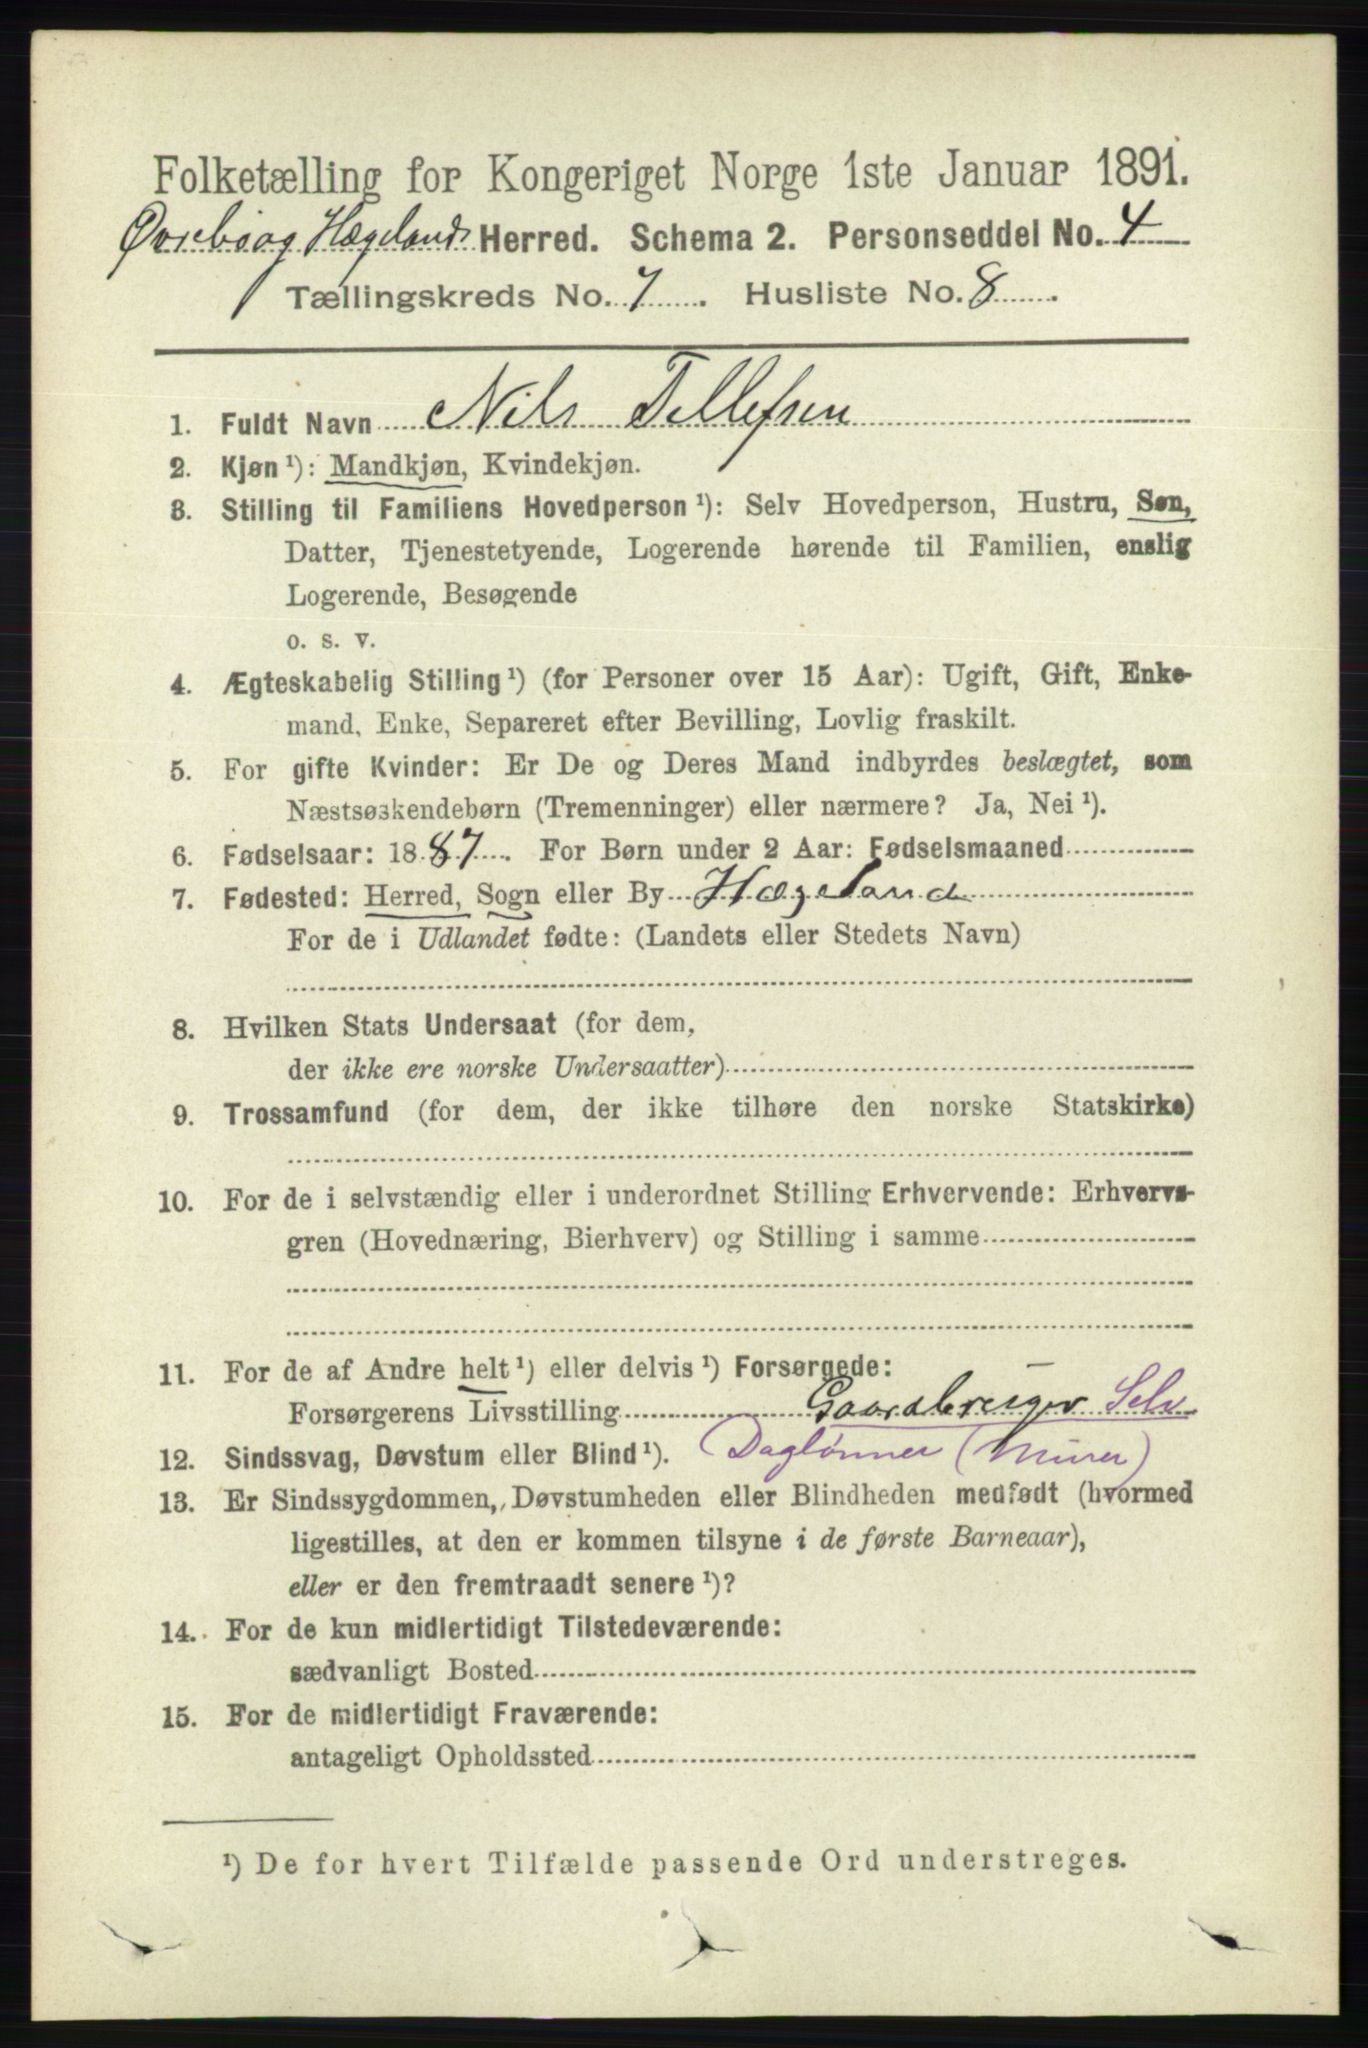 Folketælling for Kongeriget Norge 1ste Januar 1891.
Øvrebø og Hægeland Herred. Schema 2. Personseddel No. 4
Tællingskreds No. 7. Husliste No. 8.
1. Fuldt Navn Nils Tellefsen
2. Kjøn ¹): Mandkjøn, Kvindekjøn.
3. Stilling til Familiens Hovedperson ¹): Selv Hovedperson, Hustru, Søn,
Datter, Tjenestetyende, Logerende hørende til Familien, enslig
Logerende, Besøgende
o. s. v.
4. Ægteskabelig Stilling ¹) (for Personer over 15 Aar): Ugift, Gift, Enke-
mand, Enke, Separeret efter Bevilling, Lovlig fraskilt.
5. For gifte Kvinder: Er De og Deres Mand indbyrdes beslægtet, som
Næstsøskendebørn (Tremenninger) eller nærmere? Ja, Nei ¹).
6. Fødselsaar: 1887. For Børn under 2 Aar: Fødselsmaaned
7. Fødested: Herred, Sogn eller By Hægeland
For de i Udlandet fødte: (Landets eller Stedets Navn)
8. Hvilken Stats Undersaat (for dem,
der ikke ere norske Undersaatter)
9. Trossamfund (for dem, der ikke tilhøre den norske Statskirke)
10. For de i selvstændig eller i underordnet Stilling Erhvervende: Erhvervs-
gren (Hovednæring, Bierhverv) og Stilling i samme
11. For de af Andre helt ¹) eller delvis ¹) Forsørgede:
Forsørgerens Livsstilling Gaardbruger Selv
12. Sindssvag, Døvstum eller Blind ¹). Daglønner (Murer)
13. Er Sindssygdommen, Døvstumheden eller Blindheden medfødt (hvormed
ligestilles, at den er kommen tilsyne i de første Barneaar),
eller er den fremtraadt senere ¹)?
14. For de kun midlertidigt Tilstedeværende:
sædvanligt Bosted
15. For de midlertidigt Fraværende:
antageligt Opholdssted
¹) De for hvert Tilfælde passende Ord understreges.